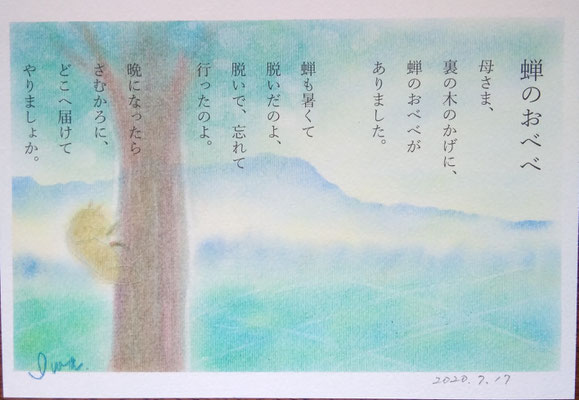 蝉のおべべ
母さま、
裏の木のかげに、
蝉のおべべが
ありました。
蝉も暑くて
脱いだのよ、
脱いで、忘れて
行ったのよ。
晩になったら
さむかろに、
どこへ届けて
やりましょか。
2020.7.17